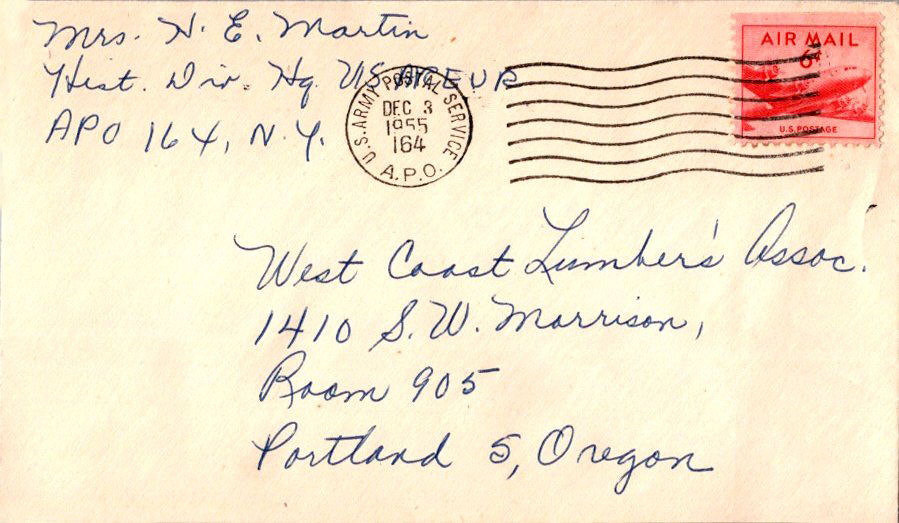 Mrs. H. E. Martin
Hist. Div. Hq USAREUR
APO 164, N.Y.
U.S. ARMY POSTAL SERVICE
DEC 3
1955
164
A.P.O.
AIR MAIL
6¢
U.S. POSTAGE
West Coast Lumber's Assoc.
1410 S.W. Morrison,
Room 905
Portland 5, Oregon